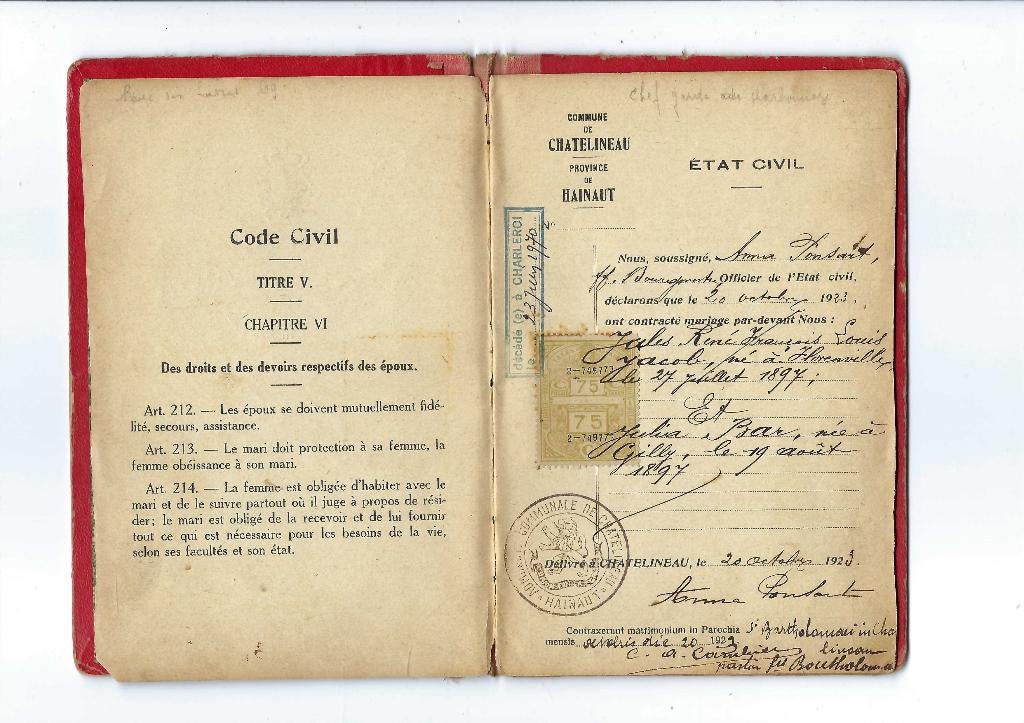 Code Civil
TITRE V.
CHAPITRE VI
Des droits et des devoirs respectifs des époux.
Art. 212. — Les époux se doivent mutuellement fidé-
lité, secours, assistance.
Art. 213. — Le mari doit protection à sa femme, la
femme obéissance à son mari.
Art. 214. — La femme est obligée d'habiter avec le
mari et de le suivre partout où il juge à propos de rési-
der; le mari est obligé de la recevoir et de lui fournir
tout ce qui est nécessaire pour les besoins de la vie,
selon ses facultés et son état.
Chef garde
COMMUNE
DE
CHATELINEAU
PROVINCE
DE
HAINAUT
ÉTAT CIVIL
décédé (e) à CHARLEROI
le 23 Juin 1970
Nous, soussigné, Anna Ponsart,
ff. Bourgmestre Officier de l'Etat civil,
déclarons que le 20 octobre 1923.
ont contracté mariage par-devant Nous :
Jules René François Louis
Jacob, né à Florenville,
le 27 juillet 1897;
Et
Julia Bar, née à
Gilly, le 19 août
1897
2-749773
75
75
2-749773
ADMINISTRATION COMMUNALE DE CHATELINEAU
HAINAUT
Délivré à CHATELINEAU, le 20 octobre 1923.
Anna Ponsart
Contraxerunt matrimonium in Parochia St Bartholomaei in
mensis die 20 1923
C. A.